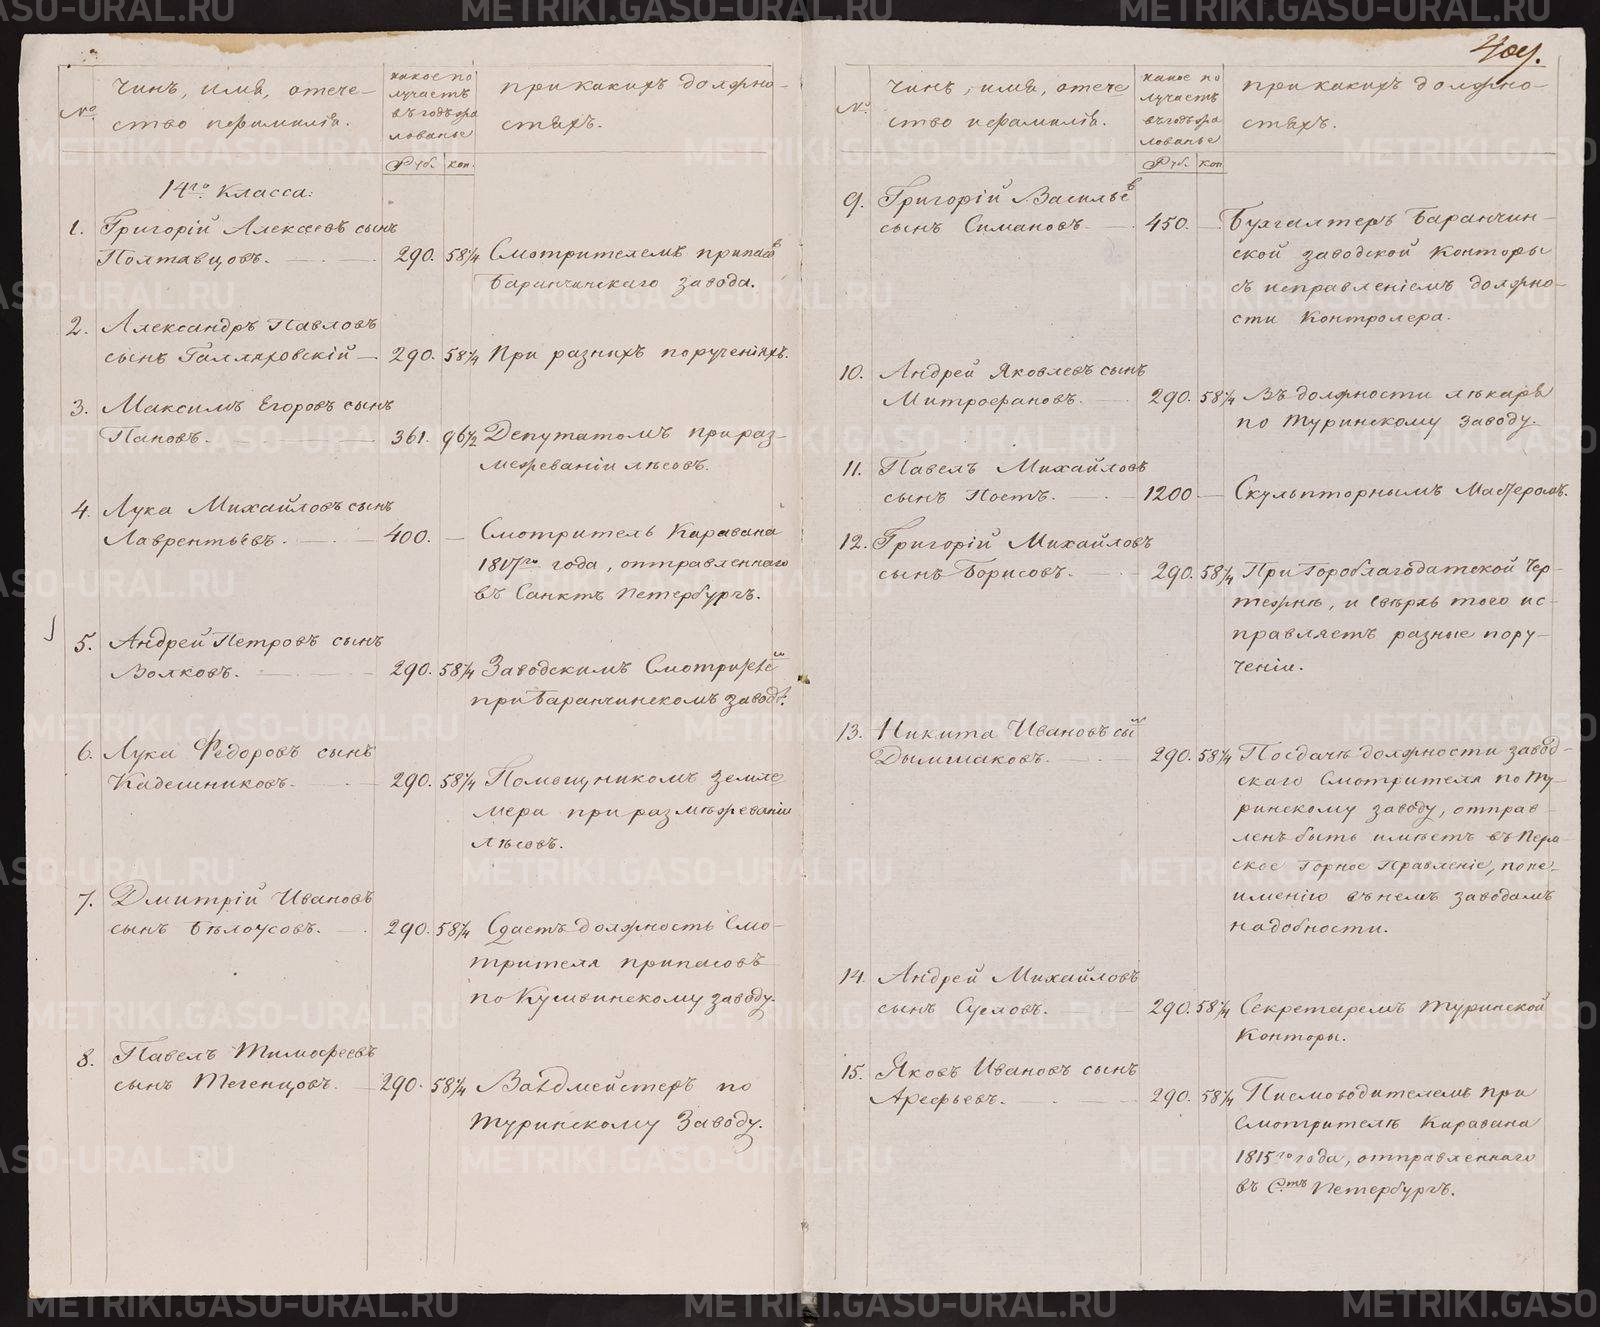 №
Чинъ, имя, отече-
ство и фамилія.
какое по
лучаетъ
въ годъ жа
лованье
Руб. коп.
при какихъ должно-
стяхъ.
14го Класса:
1. Григорій Алексеевъ сынъ
Полтавцовъ. 290. 58¼ Смотрителемъ припасовъ
Баранчинскаго завода.
2. Александръ Павловъ
сынъ Галляховскій 290. 58¼ При разныхъ порученіяхъ.
3. Максимъ Егоровъ сынъ
Пановъ. 361. 96½ Депутатомъ при раз-
межеваніи лѣсовъ.
4. Лука Михайловъ сынъ
Лаврентьевъ. 400. — Смотритель Каравана
1817го года, отправленнаго
въ Санктъ Петербургъ.
5. Андрей Петровъ сынъ
Волковъ. 290. 58¼ Заводскимъ Смотрителем
при Баранчинскомъ заводѣ.
6. Лука Федоровъ сынъ
Кадешниковъ. 290. 58¼ Помощникомъ земле
мера при размѣжеваніи
лѣсовъ.
7. Дмитрій Ивановъ
сынъ Бѣлоусовъ. 290. 58¼ Сдаетъ должность Смо-
трителя припасовъ
по Кушвинскому заводу.
8. Павелъ Тимофеевъ
сынъ Тегенцовъ. 290. 58¼ Вахдмейстеръ по
Туринскому Заводу.
409.
№
Чинъ, имя, отече
ство и фамилія.
какое по
лучаетъ
въ годъ жа
лованье
Руб. коп
при какихъ должно-
стяхъ.
9. Григорій Васильев
сынъ Симановъ. 450. — Бухгалтеръ Баранчин-
ской заводской Конторы
съ исправленіемъ должно-
сти Контролера.
10. Андрей Яковлевъ сынъ
Митрофановъ. 290. 58¼ Въ должности лѣкаря
по Туринскому заводу.
11. Павелъ Михайловъ
сынъ Постъ. 1200 — Скульпторнымъ Мастеромъ.
12. Григорій Михайловъ
сынъ Борисовъ. 290. 58¼ При Гороблагодатской Чер-
тежнѣ, и сверхъ того ис-
правляетъ разные пору-
ченіи.
13. Никита Ивановъ сын
Дымшаковъ. 290. 58¼ По сдачѣ должности завод-
скаго Смотрителя по Ту-
ринскому заводу, отправ-
ленъ быть имѣетъ въ Перм-
ское Горное Правленіе, по не-
именію въ немъ заводамъ
надобности.
14. Андрей Михайловъ
сынъ Сусловъ. 290. 58¼ Секретаремъ Туринской
Конторы.
15. Яковъ Ивановъ сынъ
Арефьевъ. 290. 58¼ Писмоводителемъ при
Смотрителѣ Каравана
1815го года, отправленнаго
въ С.тъ Петербургъ.